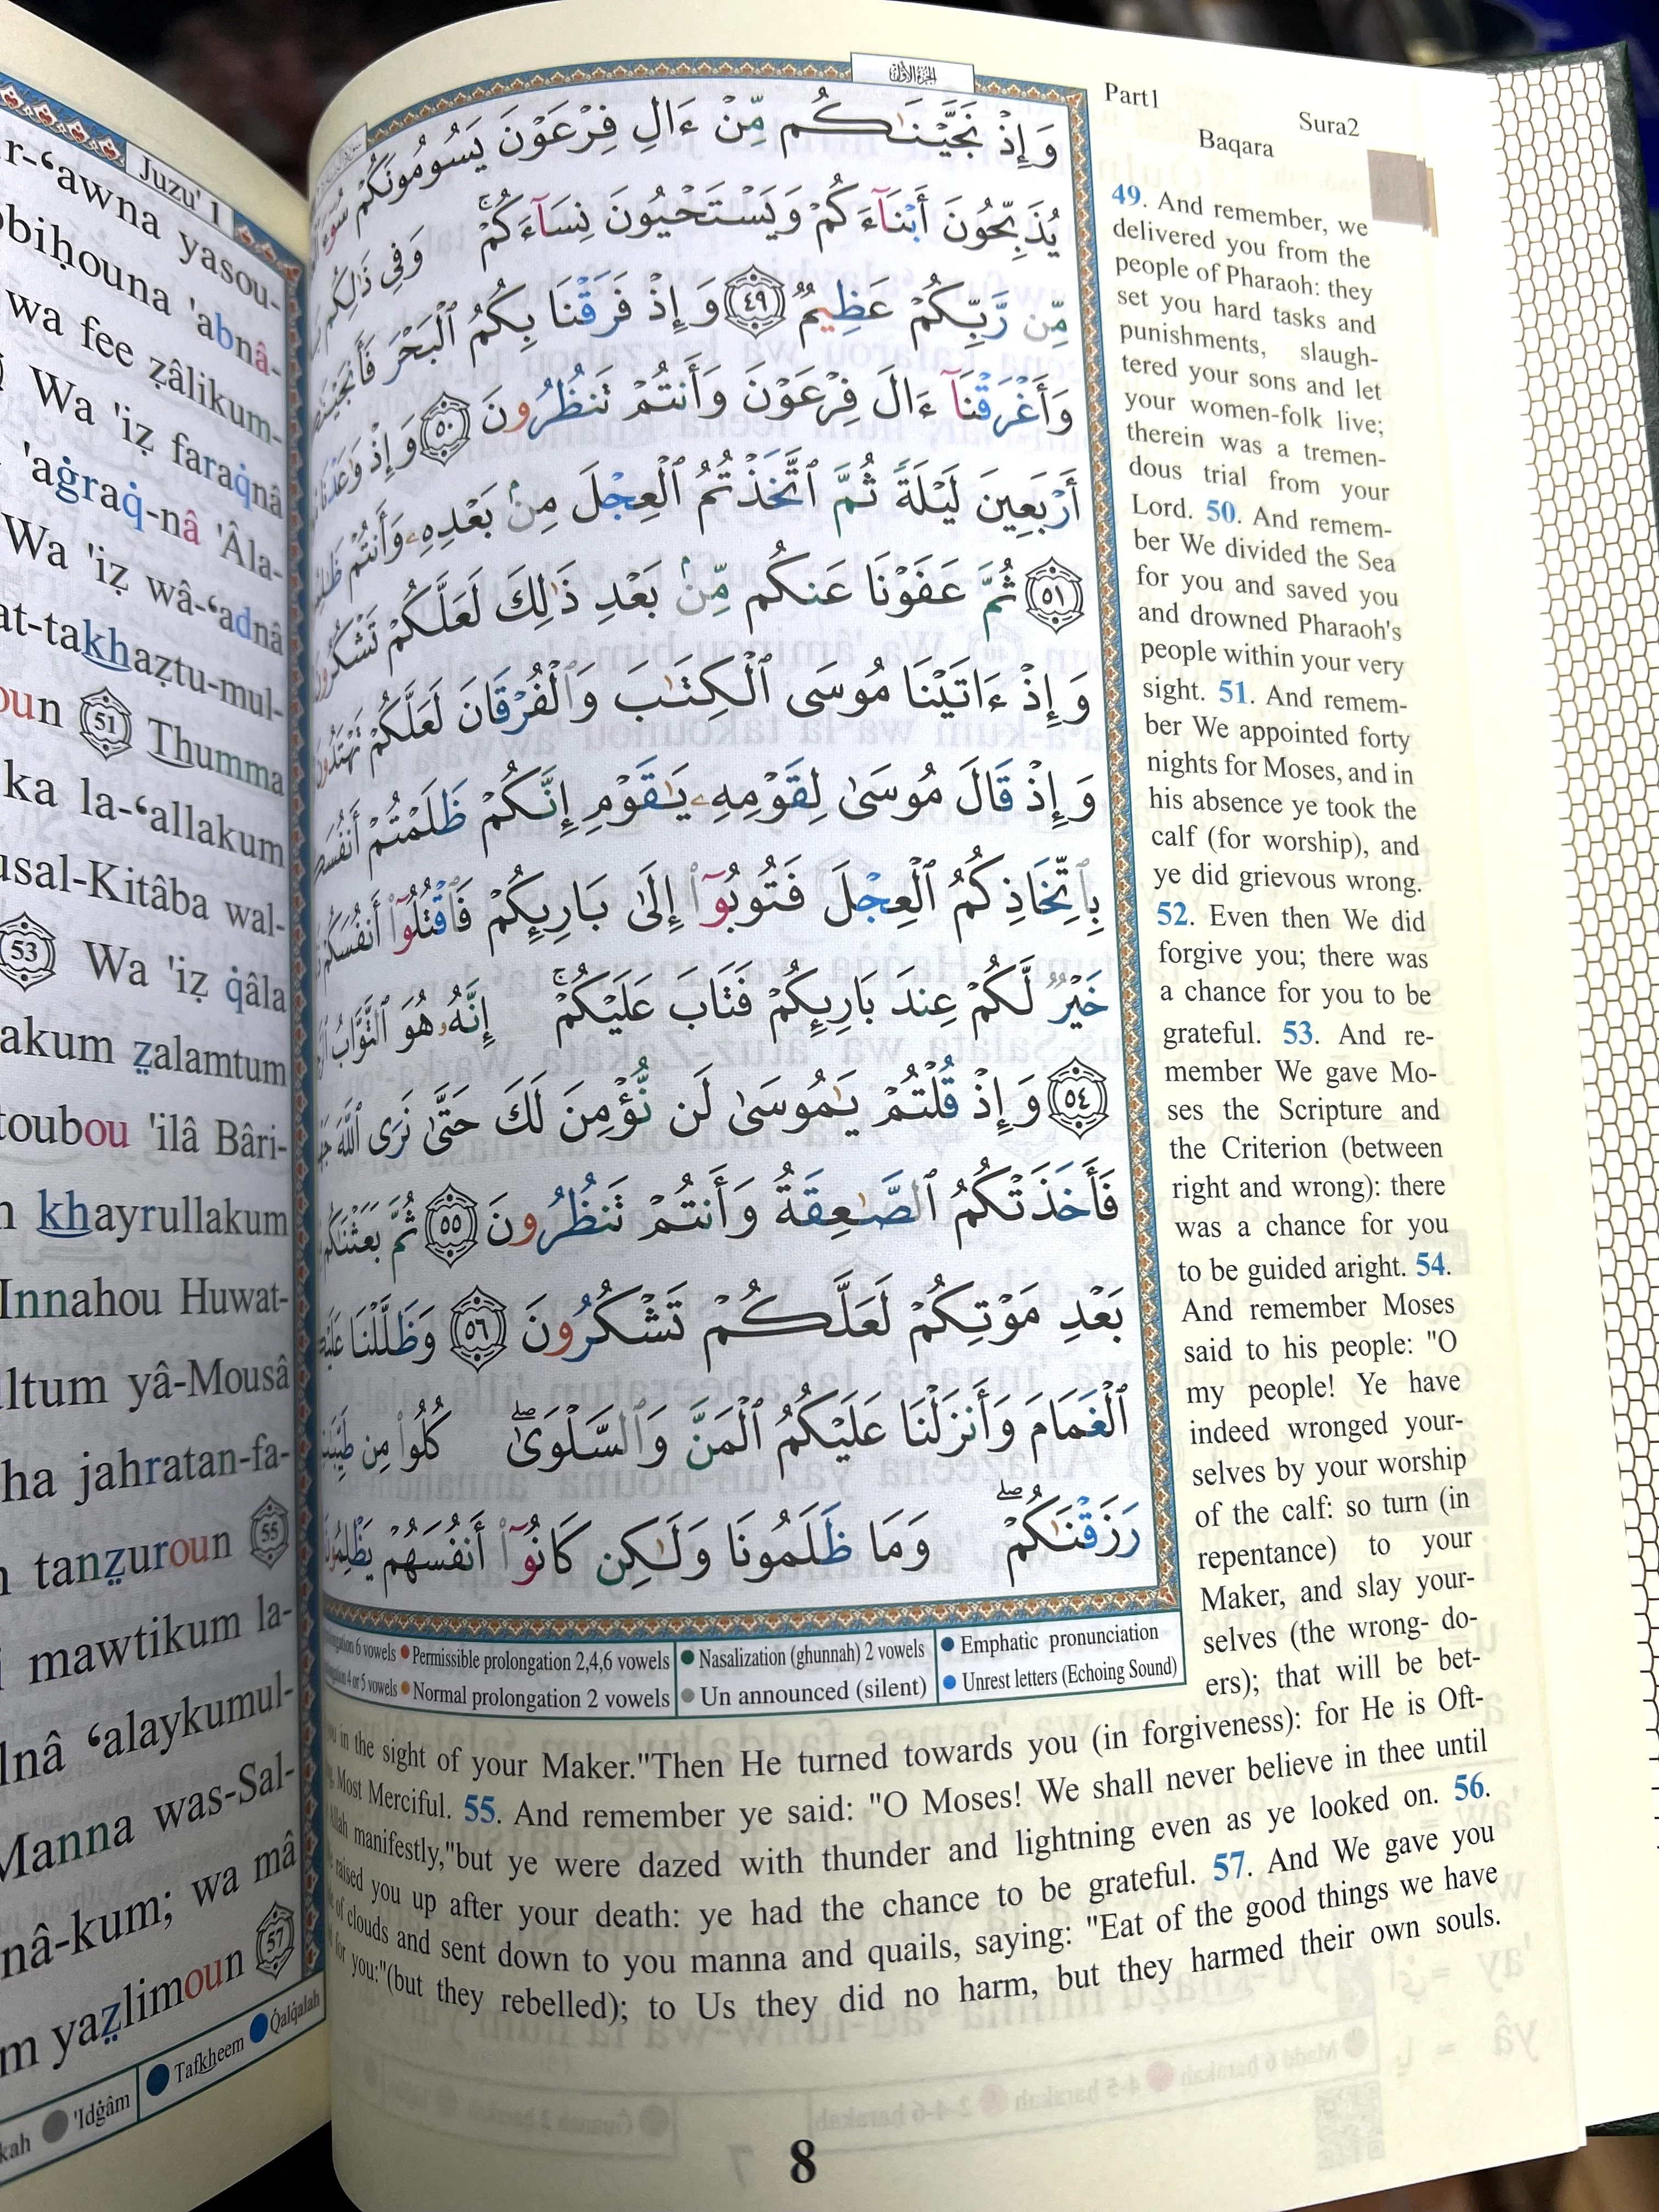 Juzu' 1
r-‘awna yasou-
bihouna 'abnâ-
wa fee ẓâlikum-
Wa 'iẓ faraq̇nâ
'aġraq̇-nâ 'Âla-
Wa 'iẓ wâ-‘adnâ
at-takhaẓtu-mul-
oun 51 Thumma
ka la-‘allakum
usal-Kitâba wal-
53 Wa 'iẓ q̇âla
akum ẓalamtum
toubou 'ilâ Bâri-
khayrullakum
Innahou Huwat-
ultum yâ-Mousâ
ha jahratan-fa-
tanẓuroun 55
mawtikum la-
lnâ ‘alaykumul-
Manna was-Sal-
nâ-kum; wa mâ
m yaẓlimoun 57
kah 'Idġâm Tafkheem Q̇alq̇alah
الجزء الأول
Part1
Sura2
Baqara
وَإِذْ نَجَّيْنَـٰكُم مِّنْ ءَالِ فِرْعَوْنَ يَسُومُونَكُمْ سُوٓءَ
يُذَبِّحُونَ أَبْنَآءَكُمْ وَيَسْتَحْيُونَ نِسَآءَكُمْ ۚ وَفِى ذَٰلِكُم
مِّن رَّبِّكُمْ عَظِيمٌ ﴿٤٩﴾ وَإِذْ فَرَقْنَا بِكُمُ ٱلْبَحْرَ
وَأَغْرَقْنَآ ءَالَ فِرْعَوْنَ وَأَنتُمْ تَنظُرُونَ ﴿٥٠﴾ وَإِذْ وَٰعَدْنَا
أَرْبَعِينَ لَيْلَةً ثُمَّ ٱتَّخَذْتُمُ ٱلْعِجْلَ مِنۢ بَعْدِهِۦ وَأَنتُمْ
﴿٥١﴾ ثُمَّ عَفَوْنَا عَنكُم مِّنۢ بَعْدِ ذَٰلِكَ لَعَلَّكُمْ تَشْكُرُونَ
وَإِذْ ءَاتَيْنَا مُوسَى ٱلْكِتَـٰبَ وَٱلْفُرْقَانَ لَعَلَّكُمْ تَهْتَدُونَ
وَإِذْ قَالَ مُوسَىٰ لِقَوْمِهِۦ يَـٰقَوْمِ إِنَّكُمْ ظَلَمْتُمْ
بِٱتِّخَاذِكُمُ ٱلْعِجْلَ فَتُوبُوٓا۟ إِلَىٰ بَارِئِكُمْ فَٱقْتُلُوٓا۟ أَنفُسَكُمْ
خَيْرٌ لَّكُمْ عِندَ بَارِئِكُمْ فَتَابَ عَلَيْكُمْ ۚ إِنَّهُۥ هُوَ ٱلتَّوَّابُ
﴿٥٤﴾ وَإِذْ قُلْتُمْ يَـٰمُوسَىٰ لَن نُّؤْمِنَ لَكَ حَتَّىٰ نَرَى ٱللَّهَ
فَأَخَذَتْكُمُ ٱلصَّـٰعِقَةُ وَأَنتُمْ تَنظُرُونَ ﴿٥٥﴾ ثُمَّ بَعَثْنَـٰكُم
بَعْدِ مَوْتِكُمْ لَعَلَّكُمْ تَشْكُرُونَ ﴿٥٦﴾ وَظَلَّلْنَا
ٱلْغَمَامَ وَأَنزَلْنَا عَلَيْكُمُ ٱلْمَنَّ وَٱلسَّلْوَىٰ ۖ كُلُوا۟ مِن
رَزَقْنَـٰكُمْ ۖ وَمَا ظَلَمُونَا وَلَـٰكِن كَانُوٓا۟ أَنفُسَهُمْ يَظْلِمُونَ
49. And remember, we
delivered you from the
people of Pharaoh: they
set you hard tasks and
punishments, slaugh-
tered your sons and let
your women-folk live;
therein was a tremen-
dous trial from your
Lord. 50. And remem-
ber We divided the Sea
for you and saved you
and drowned Pharaoh's
people within your very
sight. 51. And remem-
ber We appointed forty
nights for Moses, and in
his absence ye took the
calf (for worship), and
ye did grievous wrong.
52. Even then We did
forgive you; there was
a chance for you to be
grateful. 53. And re-
member We gave Mo-
ses the Scripture and
the Criterion (between
right and wrong): there
was a chance for you
to be guided aright. 54.
And remember Moses
said to his people: "O
my people! Ye have
indeed wronged your-
selves by your worship
of the calf: so turn (in
repentance) to your
Maker, and slay your-
selves (the wrong- do-
ers); that will be bet-
6 vowels Permissible prolongation 2,4,6 vowels Nasalization (ghunnah) 2 vowels Emphatic pronunciation
4 or 5 vowels Normal prolongation 2 vowels Un announced (silent) Unrest letters (Echoing Sound)
in the sight of your Maker."Then He turned towards you (in forgiveness): for He is Oft-
Most Merciful. 55. And remember ye said: "O Moses! We shall never believe in thee until
Allah manifestly,"but ye were dazed with thunder and lightning even as ye looked on. 56.
raised you up after your death: ye had the chance to be grateful. 57. And We gave you
of clouds and sent down to you manna and quails, saying: "Eat of the good things we have
for you:"(but they rebelled); to Us they did no harm, but they harmed their own souls.
8